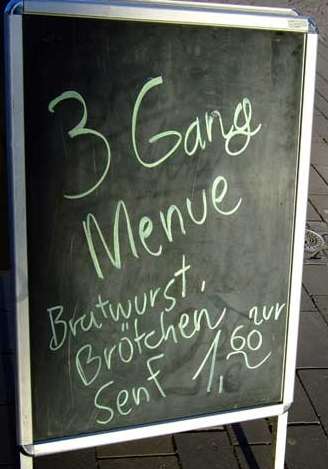 3 Gang
Menue
Bratwurst,
Brötchen nur
Senf 1,60